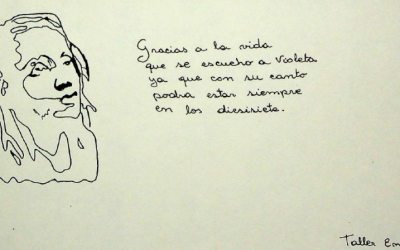 Gracias a la vida
que se escucho a Violeta
ya que con su canto
podra estar siempre
en los diesisiete.
Taller Em